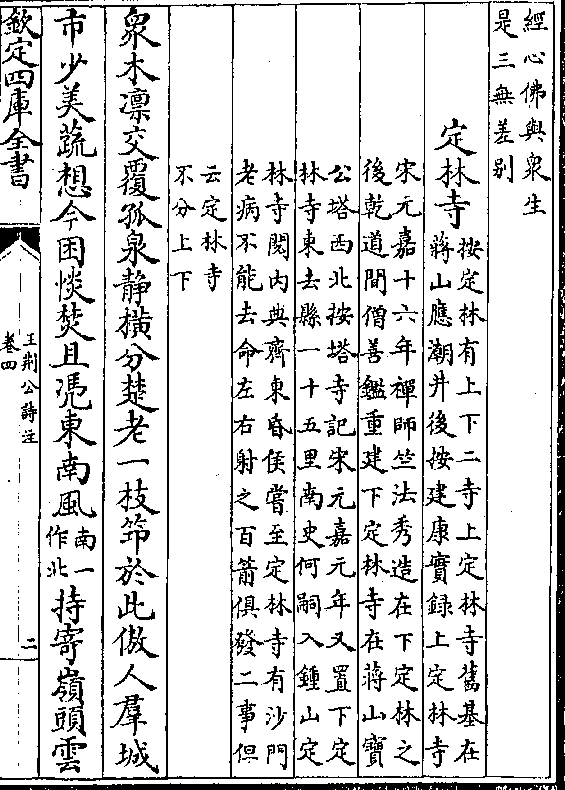 經心佛與衆生
是三無差别
定林寺
按定林有上下二寺上定林寺舊基在
蔣山應潮井後按建康實録上定林寺
宋元嘉十六年禪師竺法秀造在下定林之
後乾道間僧善鑑重建下定林寺在蔣山寶
公塔西北按塔寺記宋元嘉元年又置下定
林寺東去縣一十五里南史何嗣入鍾山定
林寺閱内典齊東昏侯嘗至定林寺有沙門
老病不能去命左右射之百箭俱發二事但
云定林寺
不分上下
衆木凛交覆孤泉靜横分楚老一枝筇於此傲人羣城
市少美蔬想今困惔焚且凭東南風南一作北持寄嶺頭雲
欽定四庫全書
王荆公詩注
卷四
二